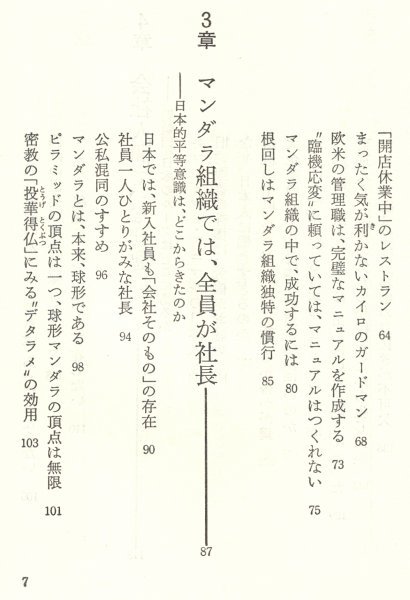 「開店休業中」のレストラン 64
まったく気が利かないカイロのガードマン 68
欧米の管理職は、完璧なマニュアルを作成する 73
〝臨機応変〟に頼っていては、マニュアルはつくれない 75
マンダラ組織の中で、成功するには 80
根回しはマンダラ組織独特の慣行 85
3章 マンダラ組織では、全員が社長 87
――日本的平等意識は、どこからきたのか
日本では、新入社員も「会社そのもの」の存在 90
社員一人ひとりがみな社長 94
公私混同のすすめ 96
マンダラとは、本来、球形である 98
ピラミッドの頂点は一つ、球形マンダラの頂点は無限 101
密教の「投華得仏」にみる〝デタラメ〟の効用 103
7